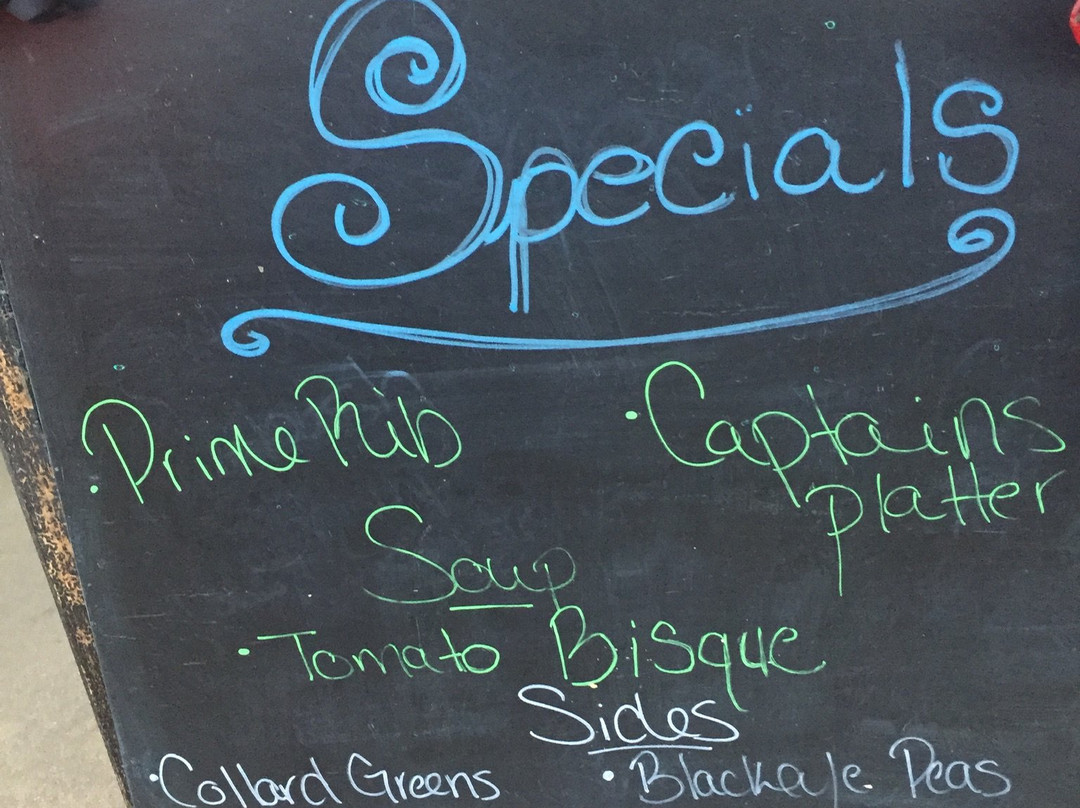 Specials
· Prime Rib
· Captains
platter
Soup
· Tomato Bisque
Sides
· Collard Greens
· Blackeye Peas